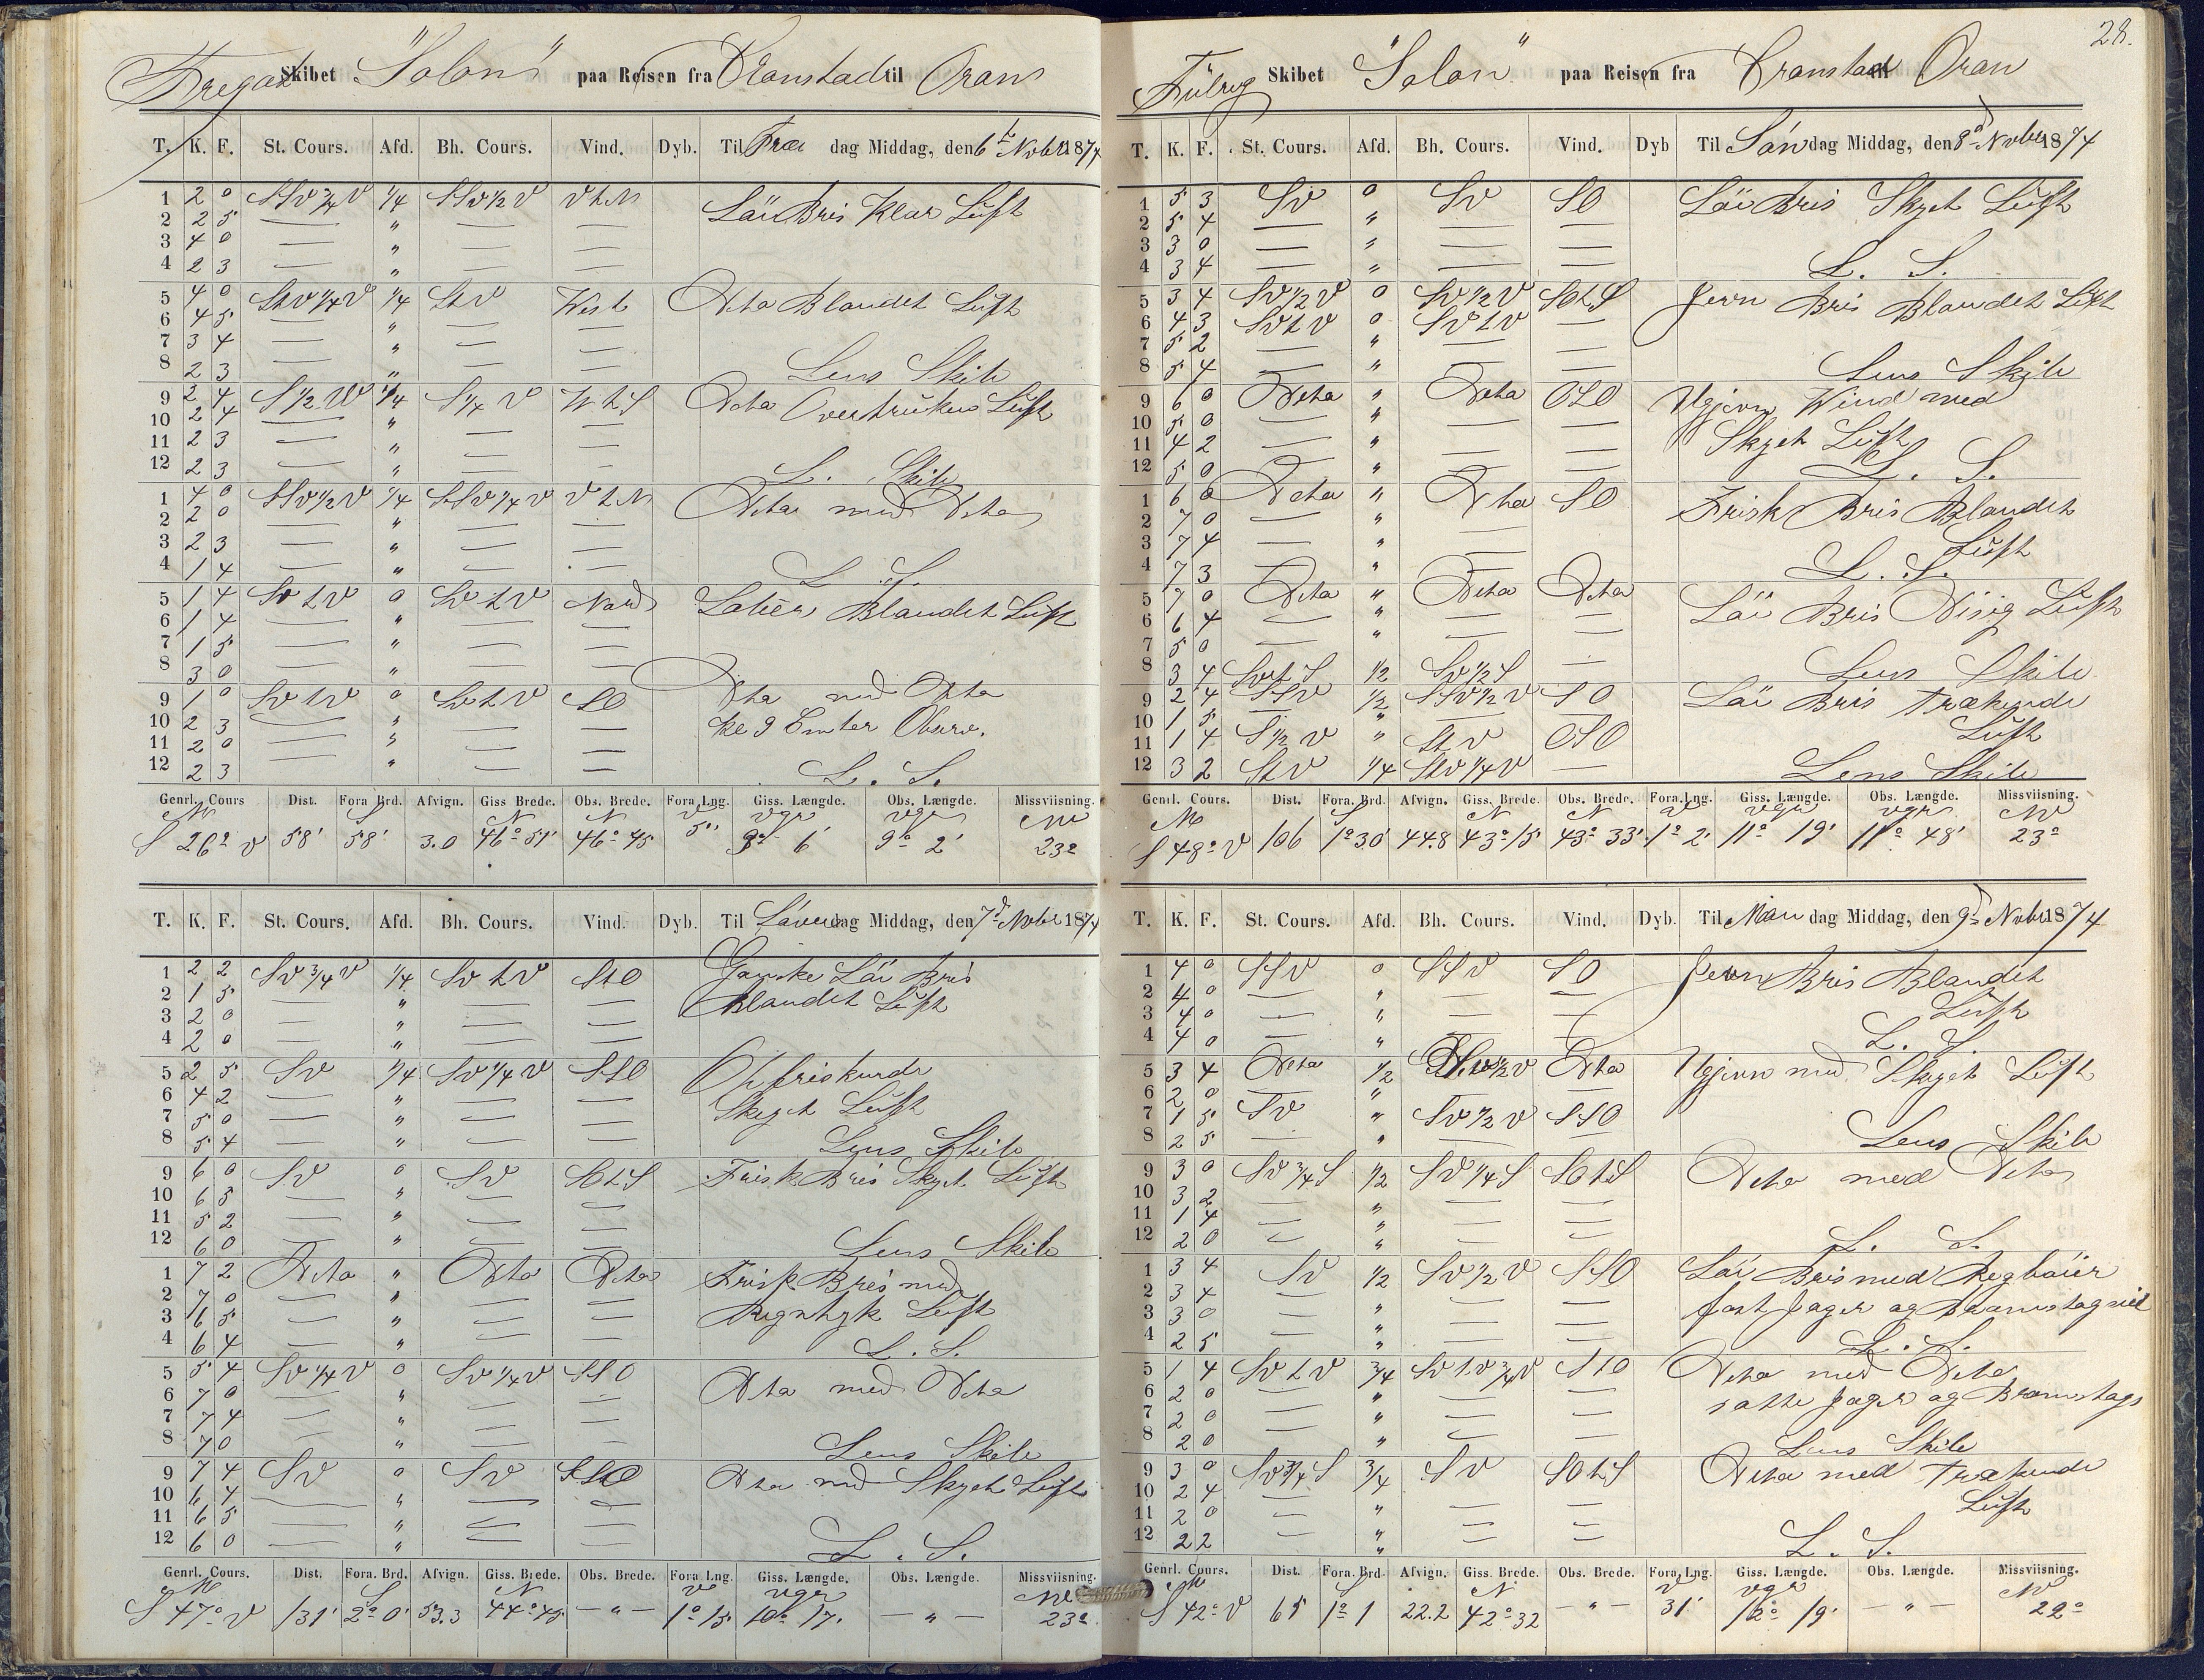 Fregat Skibet "Solon" paa Reisen fra Cronstad til Oran
T. K. F. St. Cours. Afd. Bh. Cours. Vind. Dyb. Til Fre dag Middag, den 6te Novbr 1874
1 2 0 SSV 3/4 V 1/4 SSV 1/2 V V t N Löi Bris Klar Luft
2 2 5 — " — —
3 4 0 — " — —
4 2 3 — " — —
5 4 0 StV 1/4 V 1/4 StV West Dito Blandet Luft
6 4 5 — " — —
7 3 4 — " — —
8 2 3 — " — — Lens Skib
9 2 4 S 1/2 W 1/4 S 1/4 V W t S Dito Overtrukken Luft
10 2 4 — " — —
11 2 3 — " — —
12 2 3 — " — — L. Skib
1 4 0 SSV 1/2 V 1/4 SSV 1/4 V V t N Dito med Dito
2 2 0 — " — —
3 2 3 — " — —
4 1 4 — " — — L. S.
5 1 4 SV t V 0 SV t V Nord Labèr Blandet Luft
6 1 4 — " — —
7 1 5 — " — —
8 3 0 — " — —
9 1 0 SV t V 0 SV t V SO Dito med Dito
10 2 3 — " — — Kl 9 Observ.
11 2 0 — " — —
12 2 3 — " — — L. S.
Genrl. Cours Dist. Fora Brd. Afvign. Giss Brede. Obs. Brede. Fora Lng. Giss. Længde. Obs. Længde. Missviisning.
M S N N V vgr vgr NV
S 26° V 58' 58' 3.0 46° 51' 46° 45 5' 9° 6' 9° 2' 23°
T. K. F. St. Cours. Afd. Bh. Cours. Vind. Dyb. Til Löverdag Middag, den 7de Novbr 1874
1 2 2 SV 3/4 V 1/4 SV t V StO Ganske Löi Bris
2 1 5 — " — — Blandet Luft
3 2 0 — " — —
4 2 0 — " — —
5 2 5 SV 1/4 SV 1/4 V SSO Opfriskende
6 4 2 — " — — Skyet Luft
7 5 0 — " — —
8 5 4 — " — — Lens Skib
9 6 0 SV 0 SV SO t S Frisk Bris Skyet Luft
10 6 5 — " — —
11 5 2 — " — —
12 6 0 — " — — Lens Skib
1 7 2 Dito " Dito Dito Frisk Bris med
2 7 0 — " — — Regntyk Luft
3 6 5 — " — —
4 6 4 — " — — L. S.
5 5 4 SV 1/4 V 0 SV 1/4 V SSO Dito med Dito
6 7 0 — " — —
7 7 4 — " — —
8 7 0 — " — — Lens Skib
9 7 4 SV 0 SV SSO Dito med Skyet Luft
10 6 4 — " — —
11 6 5 — " — —
12 6 0 — " — — L. S.
Genrl. Cours. Dist. Fora. Brd. Afvign. Giss. Brede. Obs. Brede. Fora Lng. Giss. Længde. Obs. Længde. Missviisning.
M S N V vgr NV
S 47° V 131' 2° 0' 53.3 44° 45 — " — 1° 15' 10° 17' — " — 23°
28.
Fulrig Skibet "Solon" paa Reisen fra Cronstad Oran
T. K. F. St. Cours. Afd. Bh. Cours. Vind. Dyb Til Söndag Middag, den 8de Novbr 1874
1 5 3 SV 0 SV SO Löi Bris Skyet Luft
2 5 4 — " — —
3 3 0 — " — —
4 3 4 — " — — L. S.
5 3 4 SV 1/2 V 0 SV 1/2 V SO t S Jevn Bris Blandet Luft
6 4 3 SV t V 0 SV t V —
7 5 2 — " — —
8 5 4 — " — — Lens Skib
9 6 0 Dito " Dito OSO Ujevn Wind med
10 5 0 — " — — Skyet Luft
11 4 2 — " — —
12 5 0 — " — — L. S.
1 6 0 Dito " Dito SO Frisk Bris Blandet
2 7 0 — " — — Luft
3 7 4 — " —
4 7 3 " — L. S.
5 7 0 Dito " Dito Dito Löi Bris Disig Luft
6 6 4 — " — —
7 5 0 — " — —
8 3 4 SV t S 1/2 SV 1/2 S — Lens Skib
9 2 4 SSV 1/2 SSV 1/2 V SO Löi Bris Trækende
10 1 5 — " — — Luft
11 1 4 S 1/2 V " St V OSO
12 3 2 St V 1/4 StV 1/4 V — Lens Skib
Genrl. Cours. Dist. Fora. Brd. Afvign. Giss. Brede. Obs. Brede. Fora. Lng. Giss. Længde. Obs. Længde. Missviisning.
M S N N V vgr vgr NV
S 48° V 106 1° 30' 44.8 43° 15' 43° 33' 1° 2' 11° 19' 11° 48' 23°
T. K. F. St. Cours. Afd. Bh. Cours. Vind. Dyb. Til Man dag Middag, den 9de Novbr 1874
1 4 0 SSV 0 SSV SO Jevn Bris Blandet
2 4 0 — " — — Luft
3 4 0 — " — —
4 4 0 — " — — L. S.
5 3 4 Dito 1/2 1/2 V Dito Ujevn med Skyet Luft
6 2 0 — " — —
7 1 5 SV " SV 1/2 V SSO
8 2 5 — " — — Lens Skib
9 3 0 SV 3/4 S 1/2 SV 1/4 S SO t S Dito med Dito
10 3 2 — " — —
11 1 4 — " — —
12 2 0 — " — — L. S.
1 3 4 SV 1/2 SV 1/2 V SSO Löi Bris med Regböier
2 3 4 — " — — fast Jager og Bramstagseil
3 3 0 — " — —
4 2 5 — " — — L. S.
5 1 4 SV t V 3/4 SV t V 3/4 V StO Dito med Dito
6 2 0 — " — — satte Jager og Bramstags
7 2 0 — " — —
8 2 0 — " — — Lens Skib
9 3 0 SV 3/4 S 3/4 SV SO t S Dito med Trækende
10 2 4 — " — — Luft
11 2 0 — " — —
12 2 2 — " — — L. S.
Genrl. Cours. Dist. Fora. Brd. Afvign. Giss. Brede. Obs. Brede. Fora. Lng. Giss. Længde. Obs. Længde. Missviisning.
M S N V vgr NV
S 42° V 65 1° 1 22.2 42° 32 — " — 31' 12° 19' — " — 22°